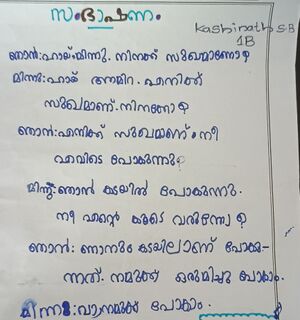 സംഭാഷണം
Kashinath S.B
1B
ഞാൻ: ഹായ് മിന്നു. നിനക്ക് സുഖമാണോ?
മിന്നു: ഹായ് എനിക്ക്
സുഖമാണ്. നിനക്കോ?
ഞാൻ: എനിക്ക് സുഖമാണ്. നീ
എവിടെ പോകുന്നു?
മിന്നു: ഞാൻ കടയിൽ പോകുന്നു.
നീ എന്റെ കൂടെ വരുന്നോ?
ഞാൻ: ഞാനും കടയിലാണ് പോകു-
ന്നത്. നമുക്ക് ഒരുമിച്ചു പോകാം.
മിന്നു: വാ നമുക്ക് പോകാം.